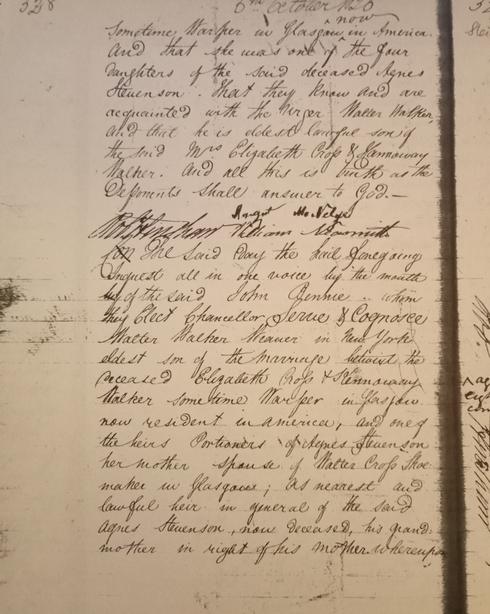 538 6th October 18
now
Sometime Warper in Glasgow ^ in America.
And that she was one of the four
daughters of the said deceased Agnes
Stevenson. That they know and are
acquainted with the Verger Walter Walker,
and that he is eldest lawful son of
the said Mrs Elizabeth Cross & Hannoway
Walker. And all this is truth as the
Deponents shall answer to God.—
William
The said Day the hail foregoing
Inquest all in one voice by the mouth
of the said John Rennie .. whom
they Elect Chancellor Serve & Cognosce
Walter Walker Weaver in New York
eldest son of the marriage betwixt the
deceased Elizabeth Cross & Hennoway
Walker sometime Warper in Glasgow
now resident in America, and one of
the heirs Portioners of Agnes Stevenson
her mother spouse of Walter Cross Shoe
maker in Glasgow; As nearest and
lawful heir in general of the said
Agnes Stevenson, now deceased, his grand
mother in right of his mother. whereupon